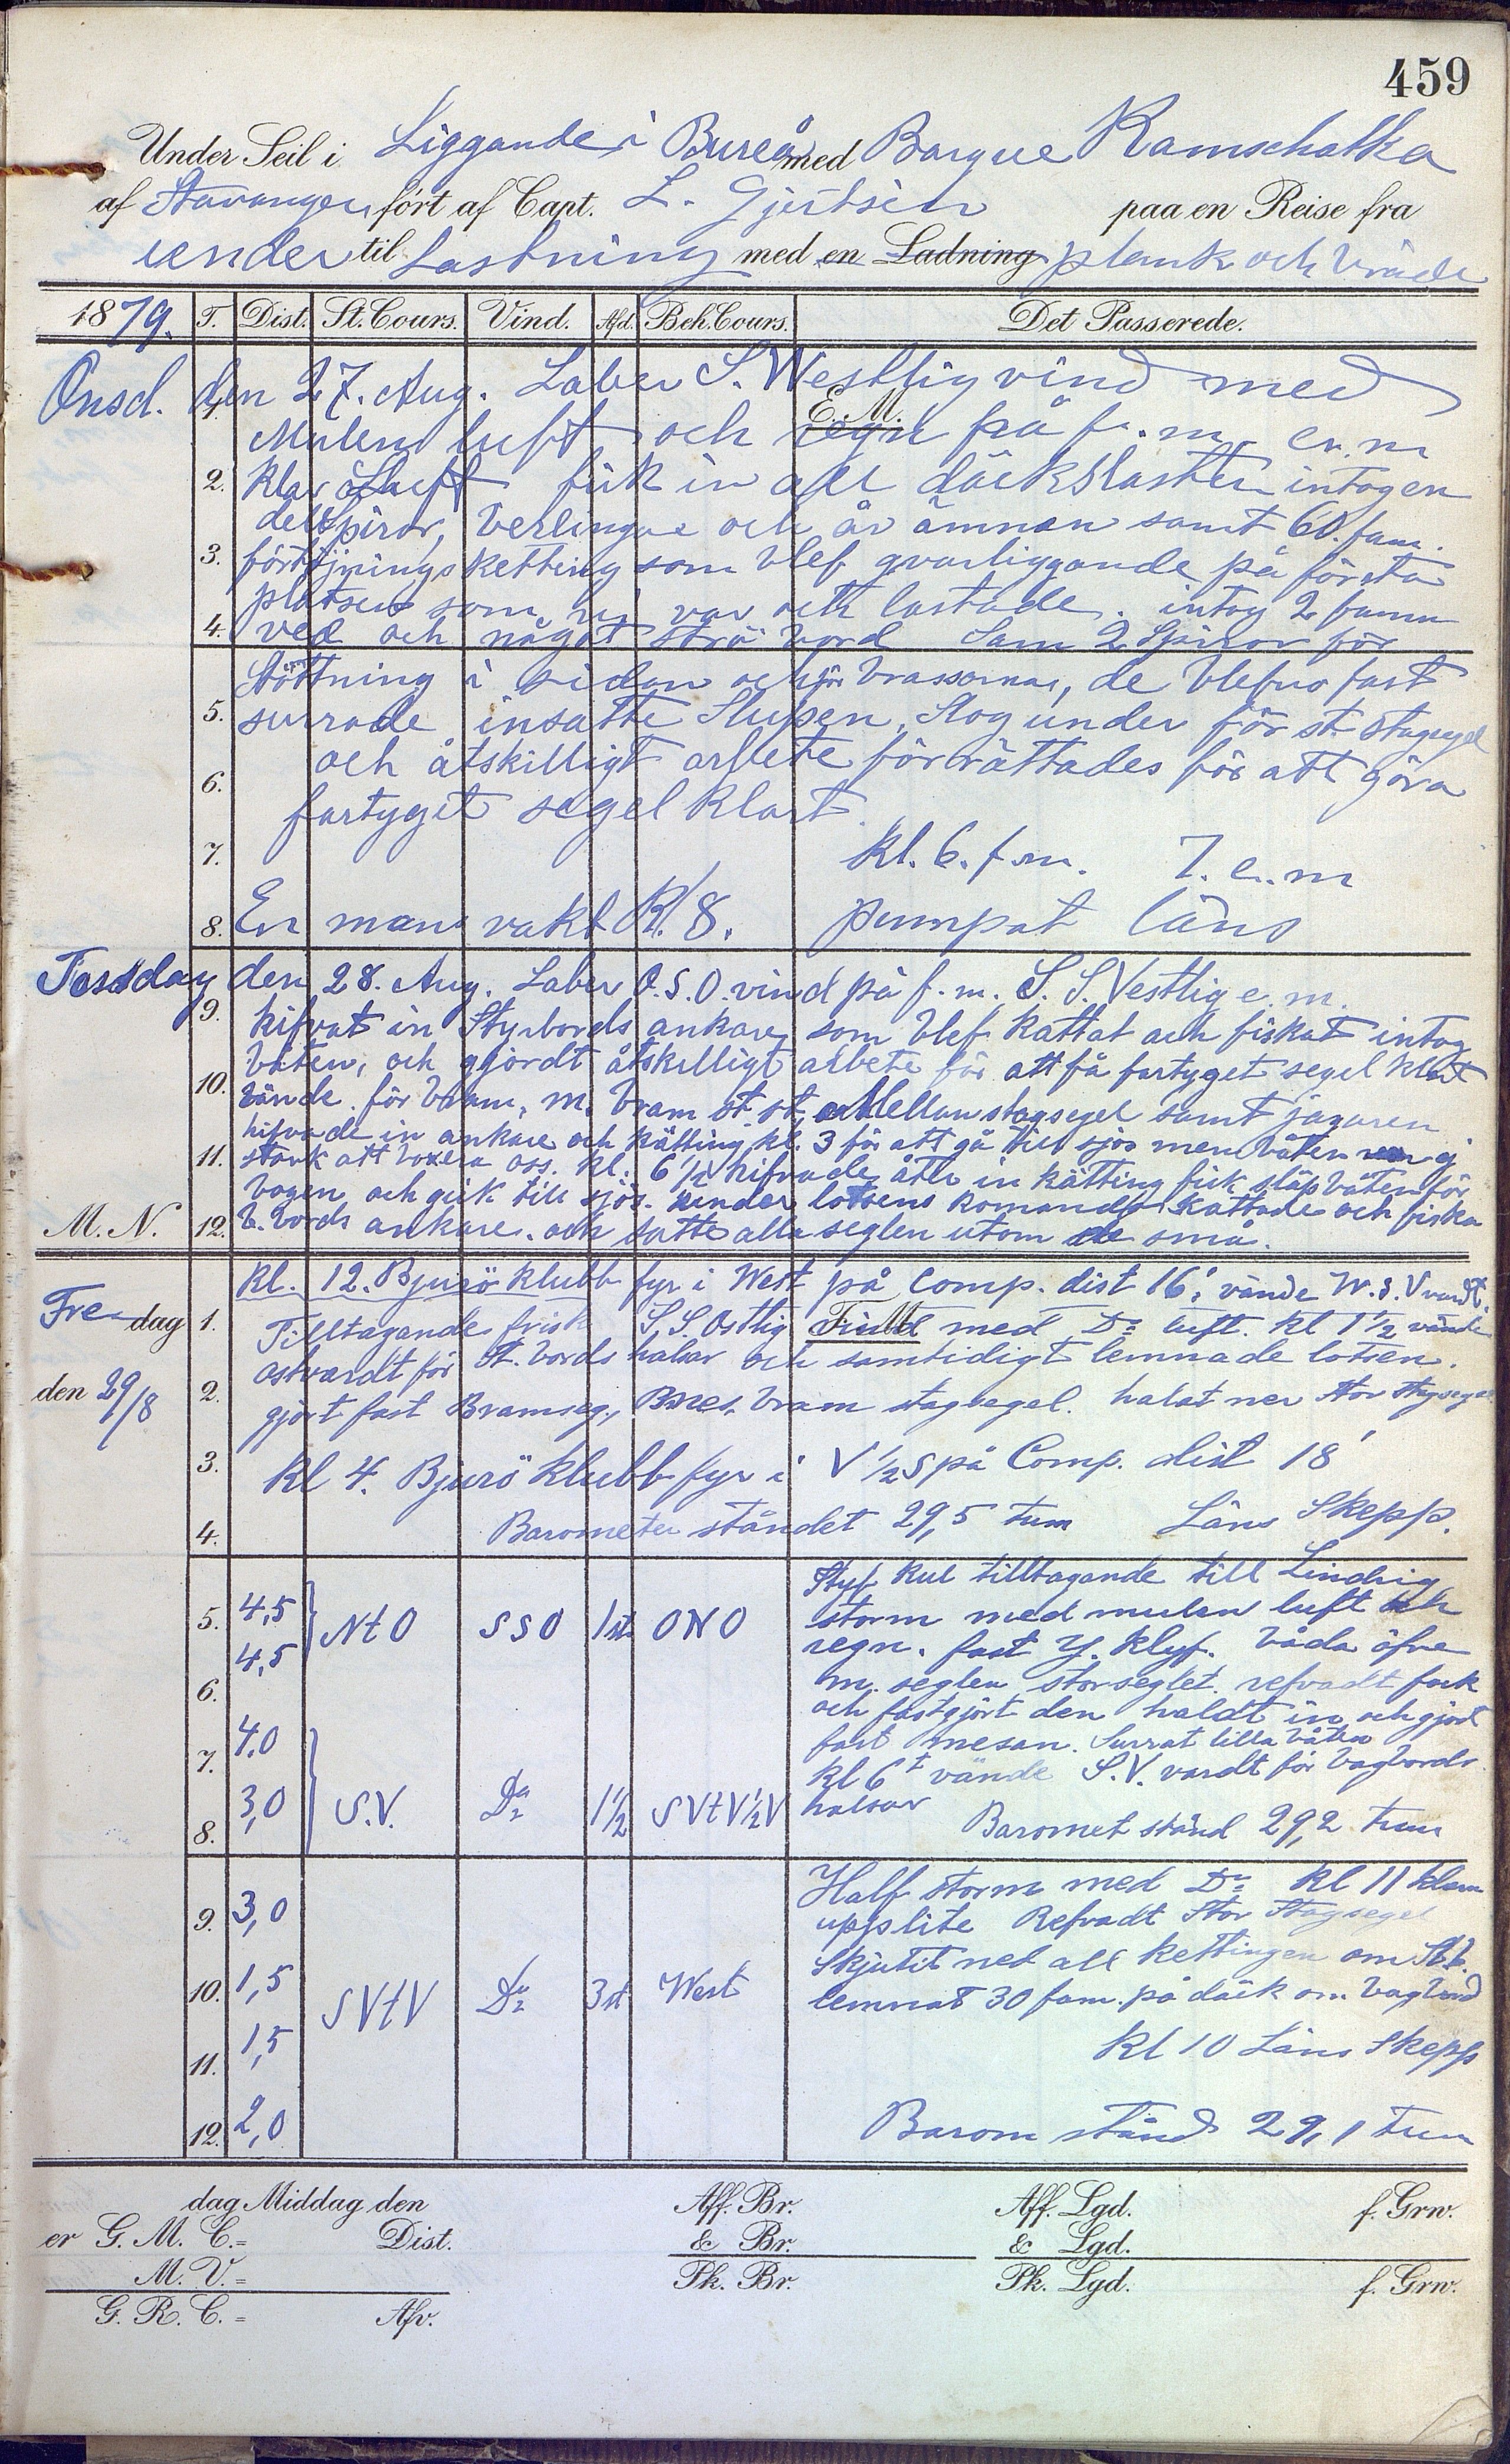 459
Under Seil i Liggande i Bureå med Barque Kamschatka
af Stavanger ført af Capt. L. Gjertsen paa en Reise fra
under til Lastning med en Ladning plank och bräde
1879. T. Dist. St. Cours. Vind. Afd. Beh. Cours. Det Passerede.
Onsd. den 27. Aug. Laber S. Westlig vind med
1. E. M.
Mulen luft och regn på f. m. e. m
2. Klar Luft fick in all däckslasten intogen
del Spiror, berlingar och år ämnen samt 60. fam.
3. förtöjnings ketting som blef qvarliggande på första
platsen som vi var och lastade. intog 2 famn
4. ved och något strö bord Sam 2 Spiror för
Stöttning i sidan och för brassarna, de blefvo fast
5. surrade insatte Slupen, Slog under för st. stagsegel
och åtskilligt arbete förrättades för att göra
6. fartyget segel klart.
7. Kl. 6. f. m. 7. e. m
8. En man vakt Kl. 8. pumpat läns
Torsdag den 28. Aug. Laber O.S.O. vind på f. m. S. S. Vestlig e. m.
9. hifvat in Styrbords ankare som blef kattat och fiskat intog
båten, och gjordt åtskilligt arbete för att få fartyget segel klart
10. för bram, m. bram st. st, Mellan stagsegel samt jagaren
hifvade in ankare och kätting kl. 3 för att gå till sjös men båten ej
11. stark att boxera oss. kl. 6 1/2 hifvade åter in kätting fick släp båten för
bogen och gick till sjös. under lotsens komando kattade och fiska
M. N. 12. b. bords ankare. och satte alla seglen utom de små.
Kl. 12. Bjurö klubb fyr i West på Comp. dist 16', vände W. S. V vardt.
Fredag 1. Tilltagande frisk S. S. Ostlig vind med Do luft. kl 1 1/2 vände
F. M.
ostvardt för St. bords halsar och samtidigt lemnade lotsen.
den 29/8 2. gjort fast Bramseg., Mes. bram stagsegel. halat ner Stor Stagsegel
3. Kl 4. Bjurö klubb fyr i V 1/2 S på Comp. dist 18'
4. Barometer ståndet 29,5 tum Läns Skepp.
Styf kul tilltagande till Lindrig
5. 4,5 NtO SSO 1 st. ONO storm med mulen luft och
4,5 regn. fast Y. Klyf. båda öfre
6. m. seglen storseglet. refvadt fock
och fastgjort den haldt in och gjort
4,0 fast mesan. Surrat lilla båten
7. kl 6 t vände S. V. vardt för bagbords
8. 3,0 S. V. Do 1 1/2 SVtV 1/2 V halsar Baromet stånd 29,2 tum
Half storm med Do Kl 11
9. 3,0 uppslite Refvadt Stor Stagsegel
Skjutit ned all kettingen om St.b.
10. 1,5 SVtV Do 3 st West lemnat 30 fam. på däck om bagbord
11. 1,5 Kl 10 Läns Skepp
12. 2,0 Barom stånd 29,1 tum
dag Middag den Aff. Br. Aff. Lgd. f. Grw.
er G. M. C. = Dist. & Br. & Lgd.
M. V. = Pk. Br. Pk. Lgd. f. Grw.
G. R. C. = Afv.